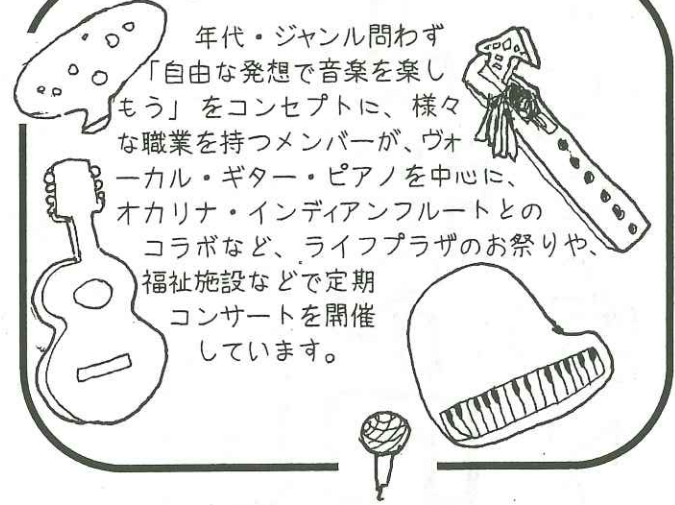 年代・ジャンル問わず
「自由な発想で音楽を楽し
もう」をコンセプトに、様々
な職業を持つメンバーが、ヴォ
ーカル・ギター・ピアノを中心に、
オカリナ・インディアンフルートとの
コラボなど、ライフプラザのお祭りや、
福祉施設などで定期
コンサートを開催
しています。